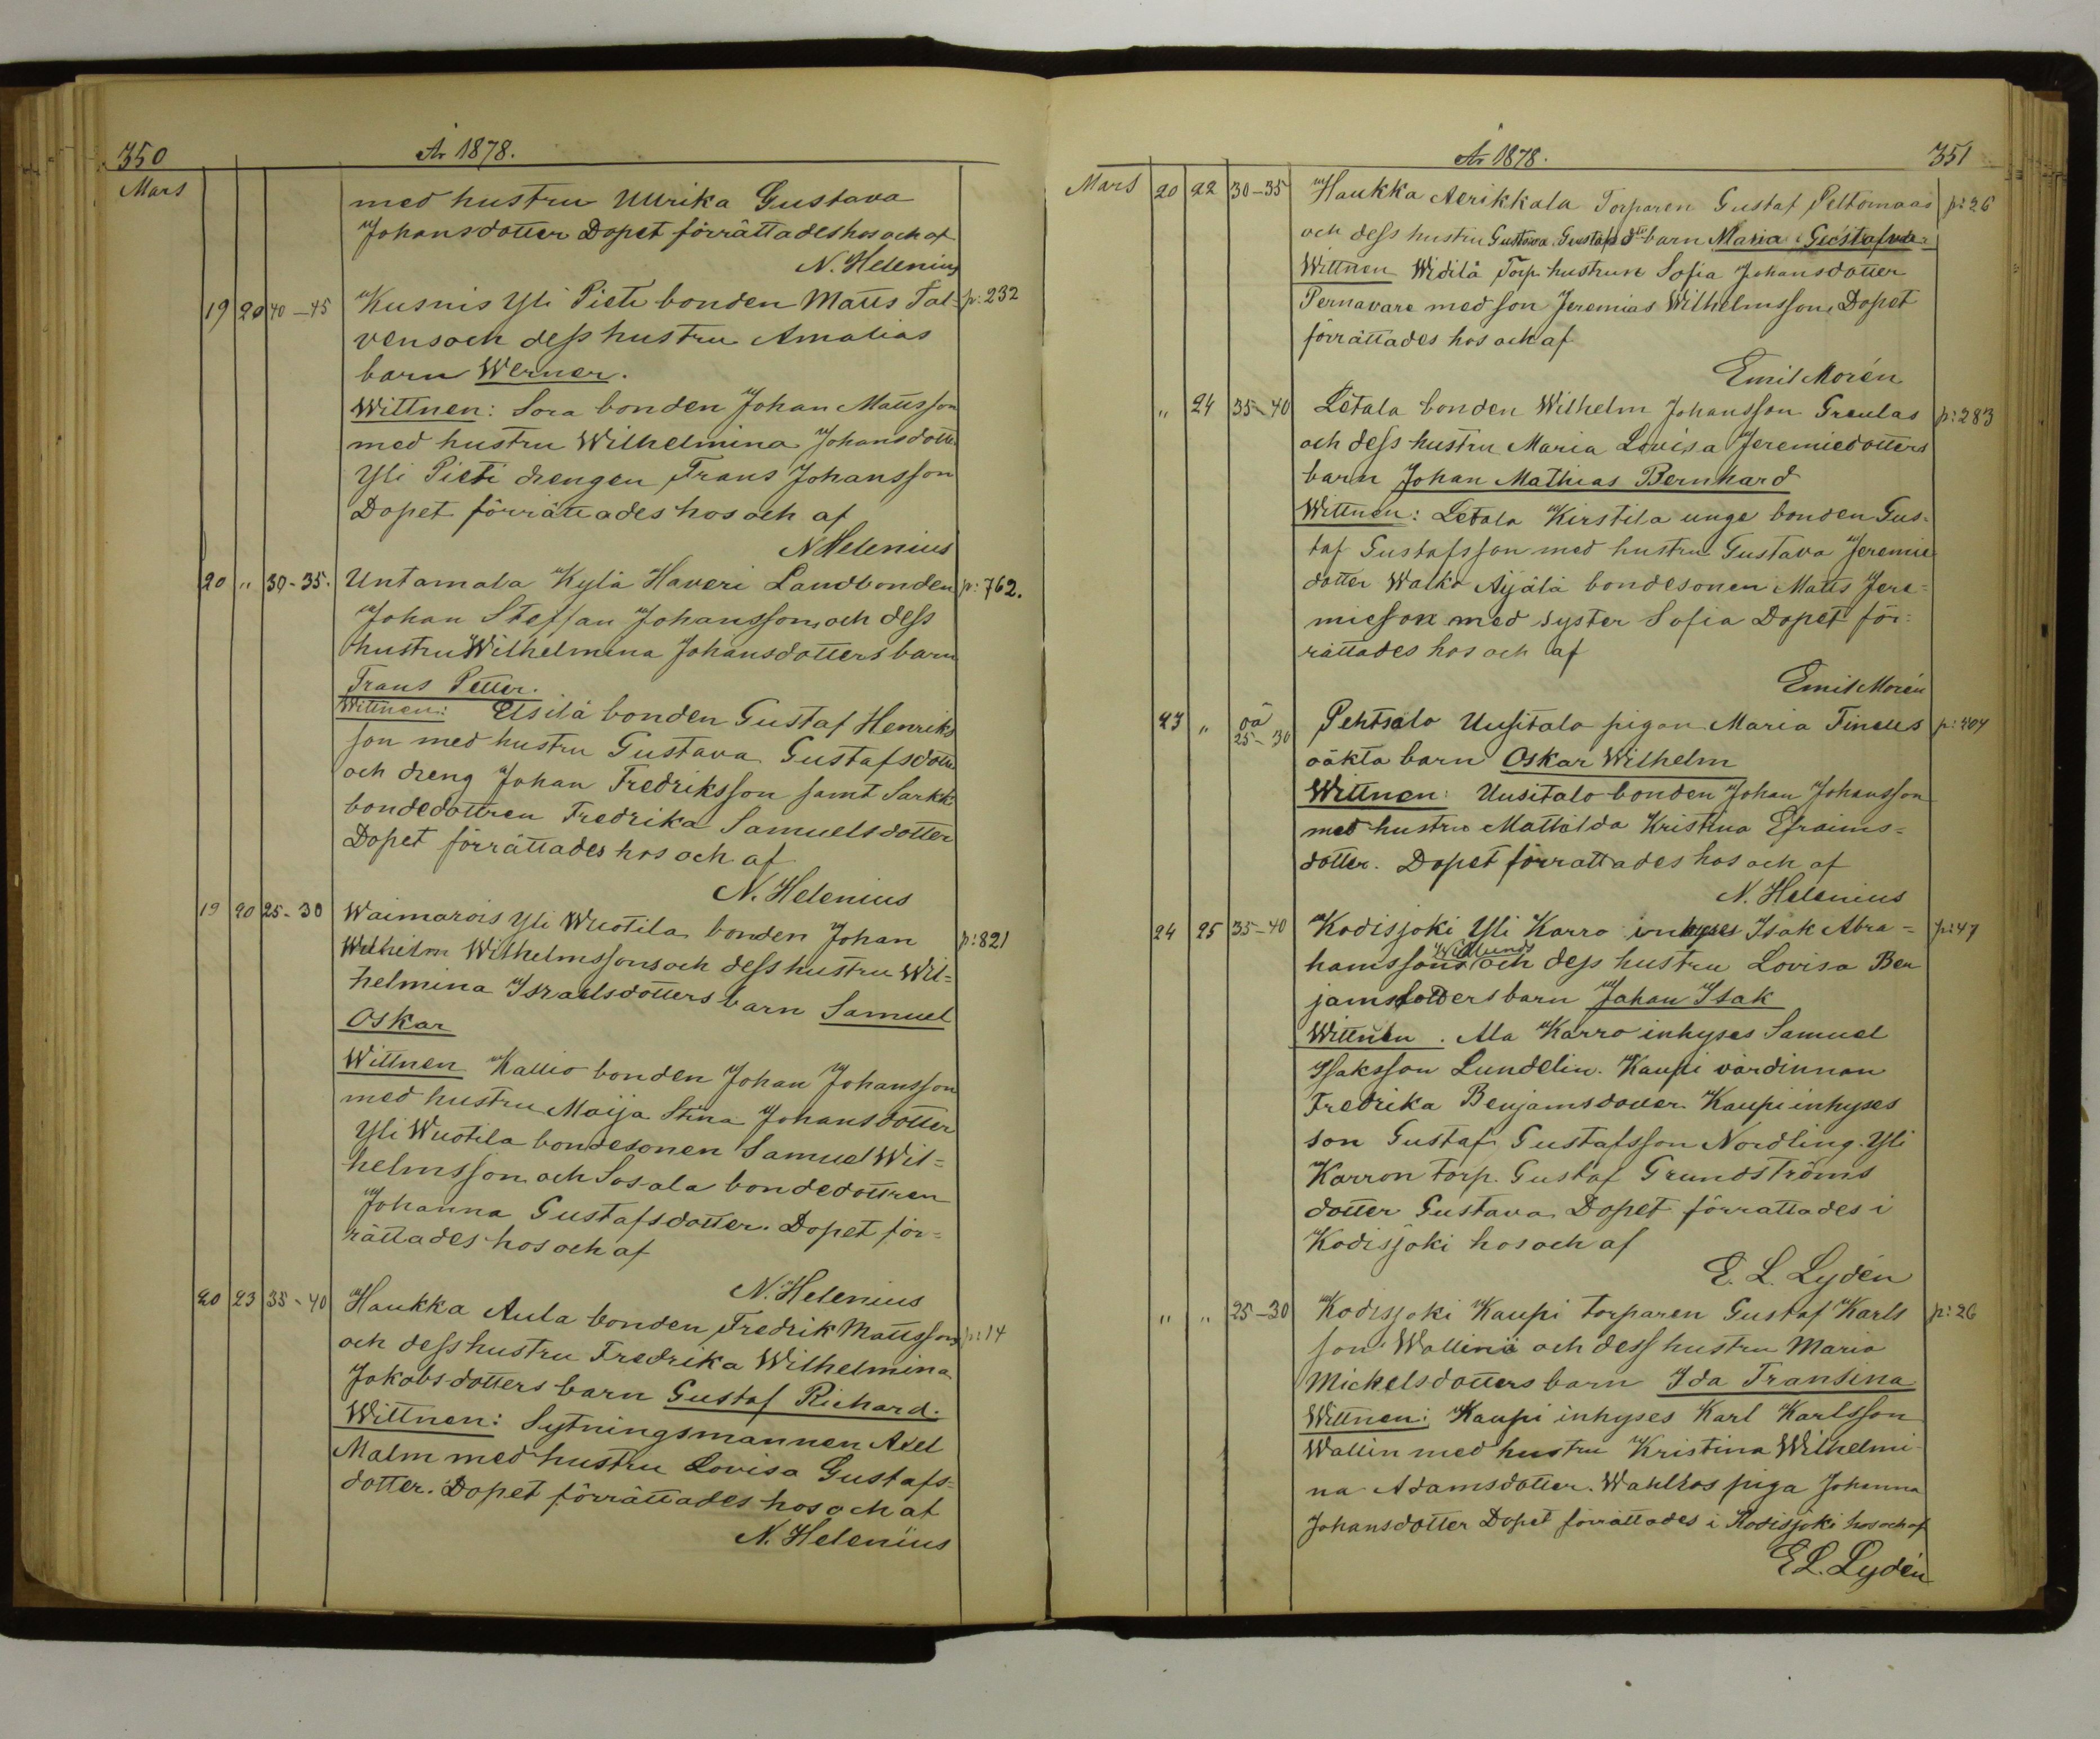 350
År 1878.
Mars
med hustru Ullrika Gustava
Johansdotter Dopet förrättades hos och af
N. Helenius
19 20 40-45 Kusnis Yli Pieti bonden Matts Tal- p: 232
vens och dess hustru Amalias
barn Werner.
Wittnen: Sora bonden Johan Mattsson
med hustru Wilhelmina Johansdotter
Yli Pieti drengen Frans Johansson
Dopet förrättades hos och af
N Helenius
20 " 30-35. Untamala Kylä Haveri Landbonden p: 762.
Johan Steffan Johanssons och dess
hustru Wilhelmina Johansdotters barn
Frans Petter.
Wittnen: Usilä bonden Gustaf Henriks
son med hustru Gustava Gustafsdotter
och dreng Johan Fredriksson samt Sarkk:
bondedottren Fredrika Samuelsdotter
Dopet förrättades hos och af
N. Helenius
19 20 25-30 Waimarois Yli Wuotila bonden Johan p: 821
Wilhelm Wilhelmssons och dess hustru Wil=
helmina Israelsdotters barn Samuel
Oskar
Wittnen Kallio bonden Johan Johansson
med hustru Maija Stina Johansdotter
Yli Wuotila bondesonen Samuel Wil=
helmsson och Sosala bondedottren
Johanna Gustafsdotter. Dopet för=
rättades hos och af
N. Helenius
20 23 35-40 Haukka Aula bonden Fredrik Mattssons p: 14
och dess hustru Fredrika Wilhelmina
Jakobsdotters barn Gustaf Richard.
Wittnen: Sytningsmannen Axel
Malm med hustru Lovisa Gustafs=
dotter. Dopet förrättades hos och af
N. Helenius
År 1878.
351
Mars 20 22 30-35 Haukka Aerikkala Torparen Gustaf Peltomaas p: 26
och dess hustru Gustava Gustafs dtr barn Maria Gustafva
Wittnen Widilä Torp hustrun Sofia Johansdotter
Pernavara med son Jeremias Wilhelmsson, Dopet
förrättades hos och af
Emil Morén
" 24 35-40 Letala bonden Wilhelm Johansson Greulas p: 283
och dess hustru Maria Lovisa Jeremiedotters
barn Johan Mathias Bernhard
Wittnen: Letala Kirstila unge bonden Gus=
taf Gustafsson med hustru Gustava Jeremie
dotter Walko Äijälä bondesonen Matts Jere=
mieson med syster Sofia Dopet för=
rättades hos och af
Emil Morén
23 " oä 25-30 Pehtsalo Uusitalo pigan Maria Tinells p: 404
oäkta barn Oskar Wilhelm
Wittnen: Uusitalo bonden Johan Johansson
med hustru Mathilda Kristina Efraims=
dotter. Dopet förrättades hos och af
N. Helenius
24 25 35-40 Kodisjoki Yli Karro inhyses Isak Abra= p: 47
Widlunds
hamssons och dess hustru Lovisa Ben
jamsdotters barn Johan Isak
Wittnen. Ala Karro inhyses Samuel
Isaksson Lundelin. Kaupi värdinnan
Fredrika Benjamsdotter Kaupi inhyses
son Gustaf Gustafsson Nordling. Yli
Karron torp. Gustaf Grundströms
dotter Gustava Dopet förrättades i
Kodisjoki hos och af
E. L. Lydén
" " 25-30 Kodisjoki Kaupi torparen Gustaf Karls p: 26
son Wallins och dess hustru Maria
Mickelsdotters barn Ida Fransina
Wittnen: Kaupi inhyses Karl Karlsson
Wallin med hustru Kristina Wilhelmi-
na Adamsdotter. Wahlros piga Johanna
Johansdotter Dopet förrättades i Kodisjoki hos och af
E. L. Lydén